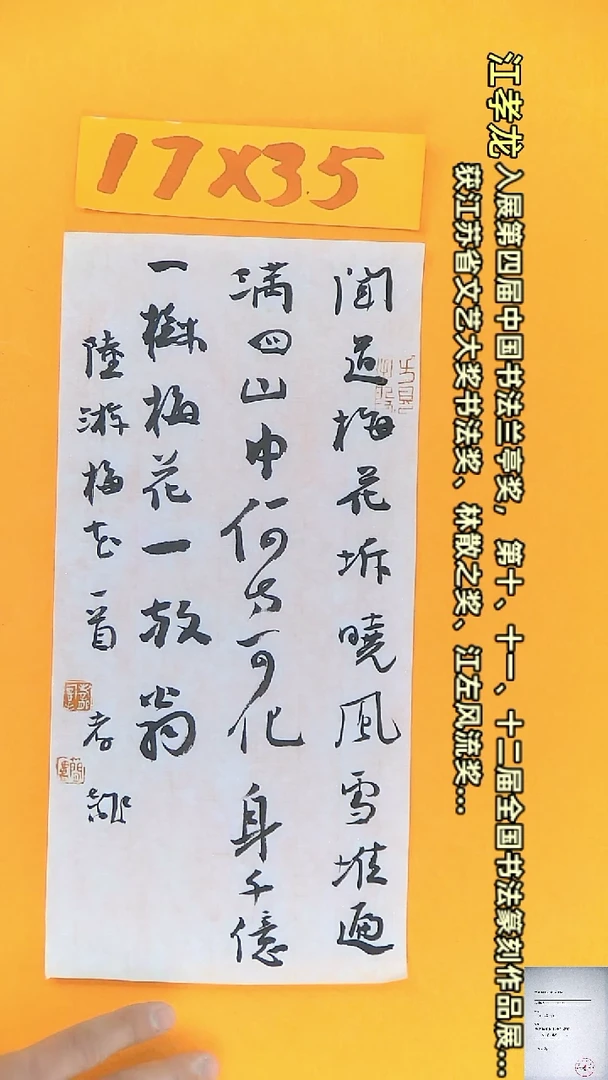 17X35
聞道梅花坼曉風雪堆遍
满四山中何方可化身千億
一樹梅花一放翁
陸游梅花一首 孝龍
江孝龙 入展第四届中国书法兰亭奖，第十、十一、十二届全国书法篆刻作品展...
获江苏省文艺大奖书法奖、林散之奖、江左风流奖...